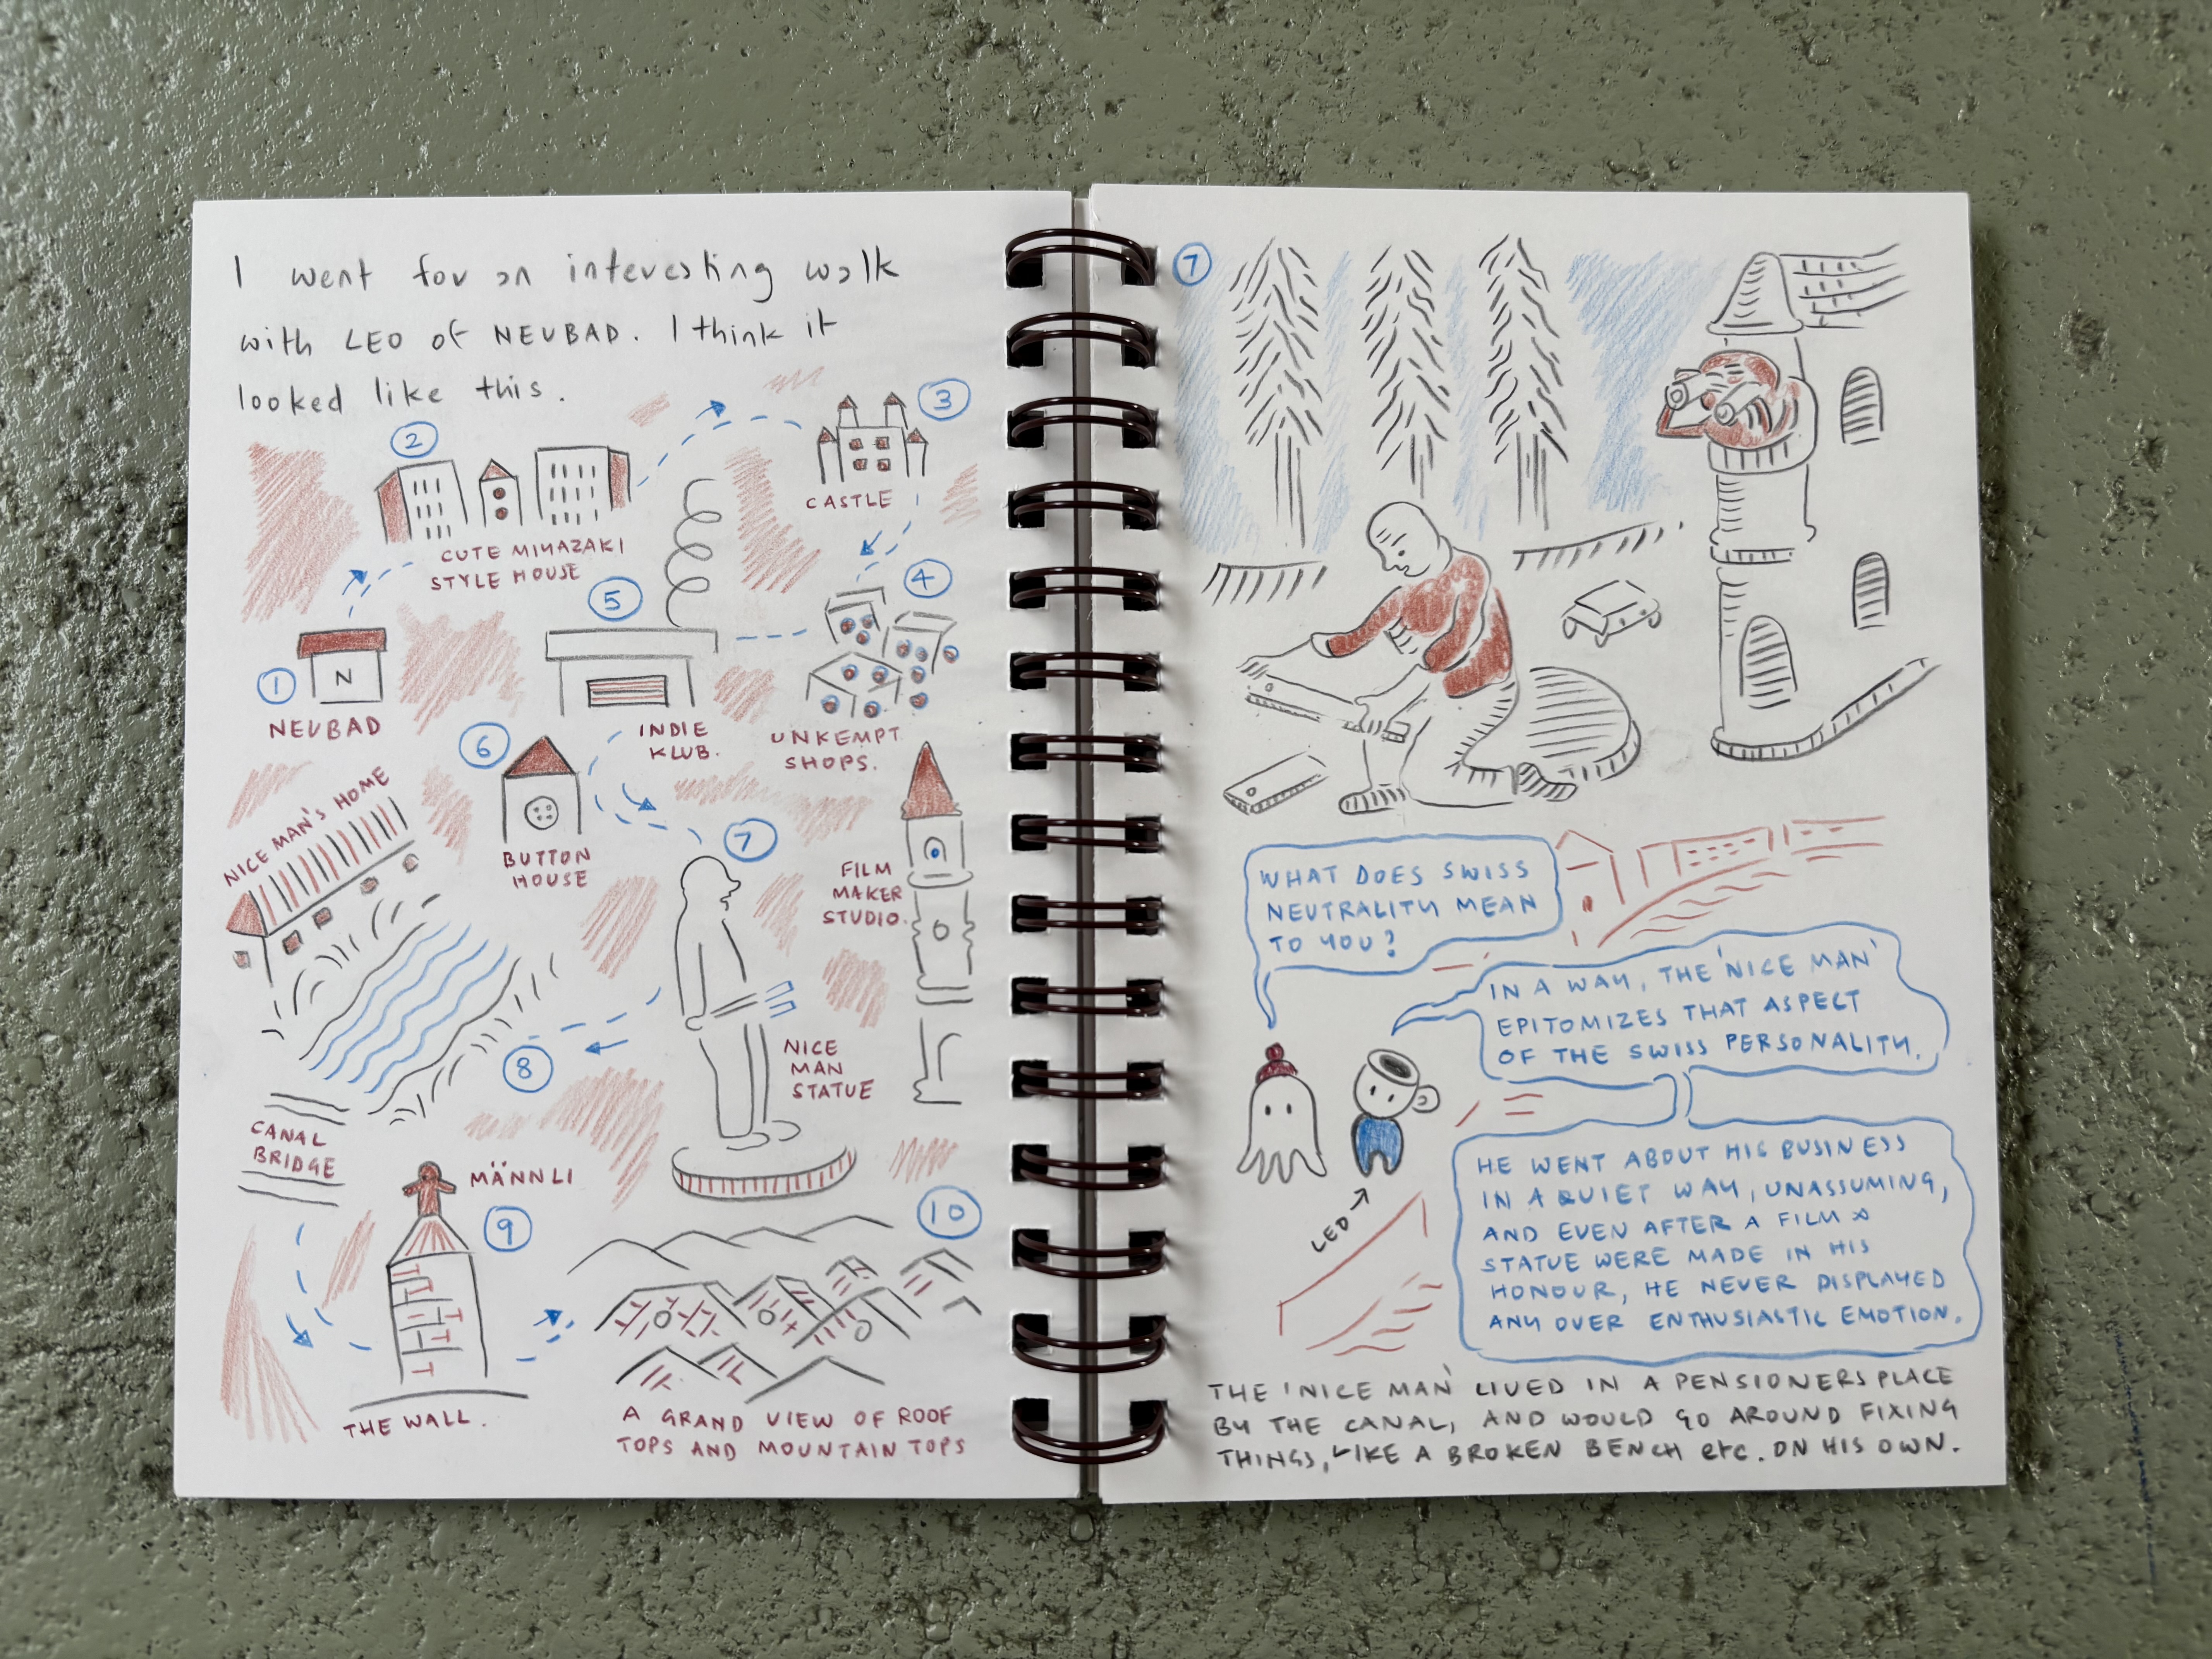 I went for an interesting walk
with LEO of NEUBAD. I think it
looked like this.
2
CUTE MIYAZAKI
STYLE HOUSE
3
CASTLE
1
N
NEUBAD
5
INDIE
KLUB.
4
UNKEMPT
SHOPS.
6
BUTTON
HOUSE
NICE MAN'S HOME
7
FILM
MAKER
STUDIO.
NICE
MAN
STATUE
8
CANAL
BRIDGE
MÄNNLI
9
THE WALL.
10
A GRAND VIEW OF ROOF
TOPS AND MOUNTAIN TOPS
7
WHAT DOES SWISS
NEUTRALITY MEAN
TO YOU?
IN A WAY, THE 'NICE MAN'
EPITOMIZES THAT ASPECT
OF THE SWISS PERSONALITY.
LEO
HE WENT ABOUT HIS BUSINESS
IN A QUIET WAY, UNASSUMING,
AND EVEN AFTER A FILM &
STATUE WERE MADE IN HIS
HONOUR, HE NEVER DISPLAYED
ANY OVER ENTHUSIASTIC EMOTION.
THE 'NICE MAN' LIVED IN A PENSIONERS PLACE
BY THE CANAL, AND WOULD GO AROUND FIXING
THINGS, LIKE A BROKEN BENCH etc. ON HIS OWN.